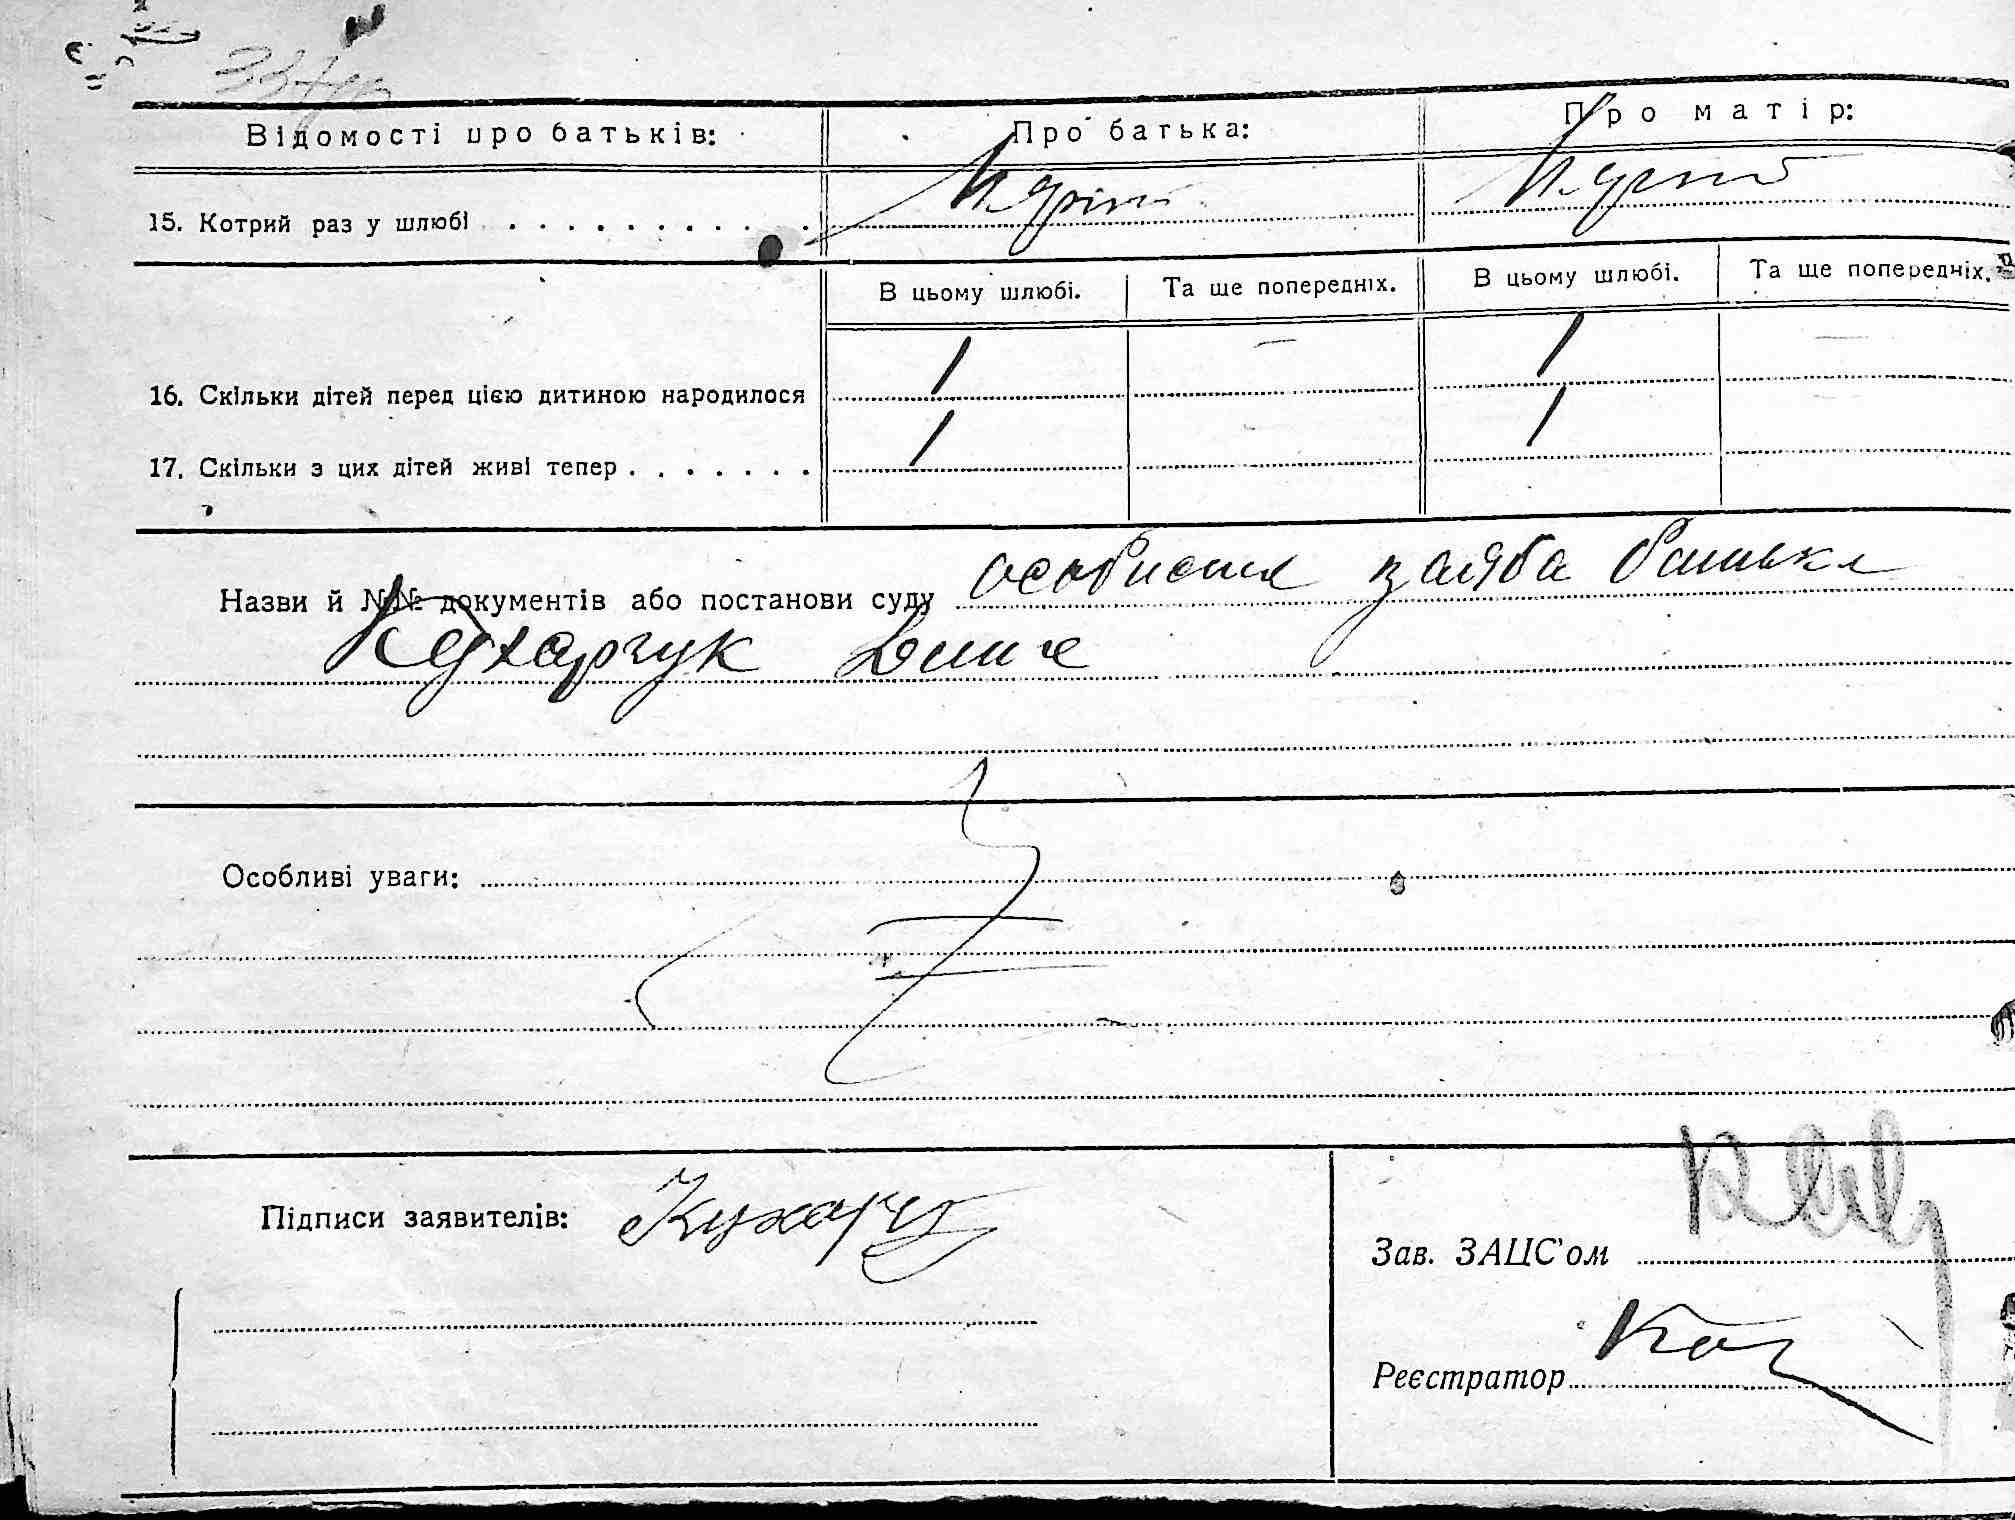 Відомості про батьків: Про батька: Про матір:
15. Котрий раз у шлюбі . . . . . . . . . . .
В цьому шлюбі. Та ще попередніх. В цьому шлюбі. Та ще попередніх.
16. Скільки дітей перед цією дитиною народилося 1 — 1 —
17. Скільки з цих дітей живі тепер . . . . . . . 1 - 1 -
Назви й №№ документів або постанови суду особиста заява батька
Кухарчук
Особливі уваги:
Підписи заявителів: Кухарчу
Зав. ЗАЦС'ом
Реєстратор